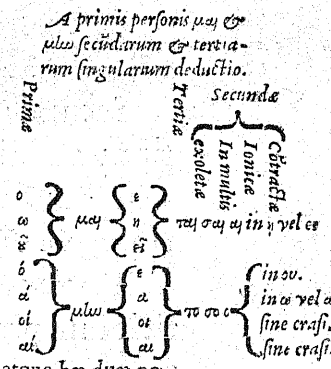 A primis personis μαι &
μίω secūdarum & tertia-
rum singularium deductio.
Primæ
Tertiæ
Secundæ
exoletæ
In multis
Ionicæ
Cōtractæ
ο ε
ω μαι η ται σαι αι in η vel ει
ει
ό ε in ου.
ά μίω α το σο ο in ω vel α
οί οι sine crasi.
αί αι sine crasi.